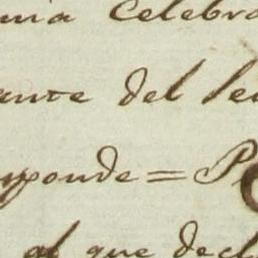 nia celebra
ante del sec
sponde = P
al que decl